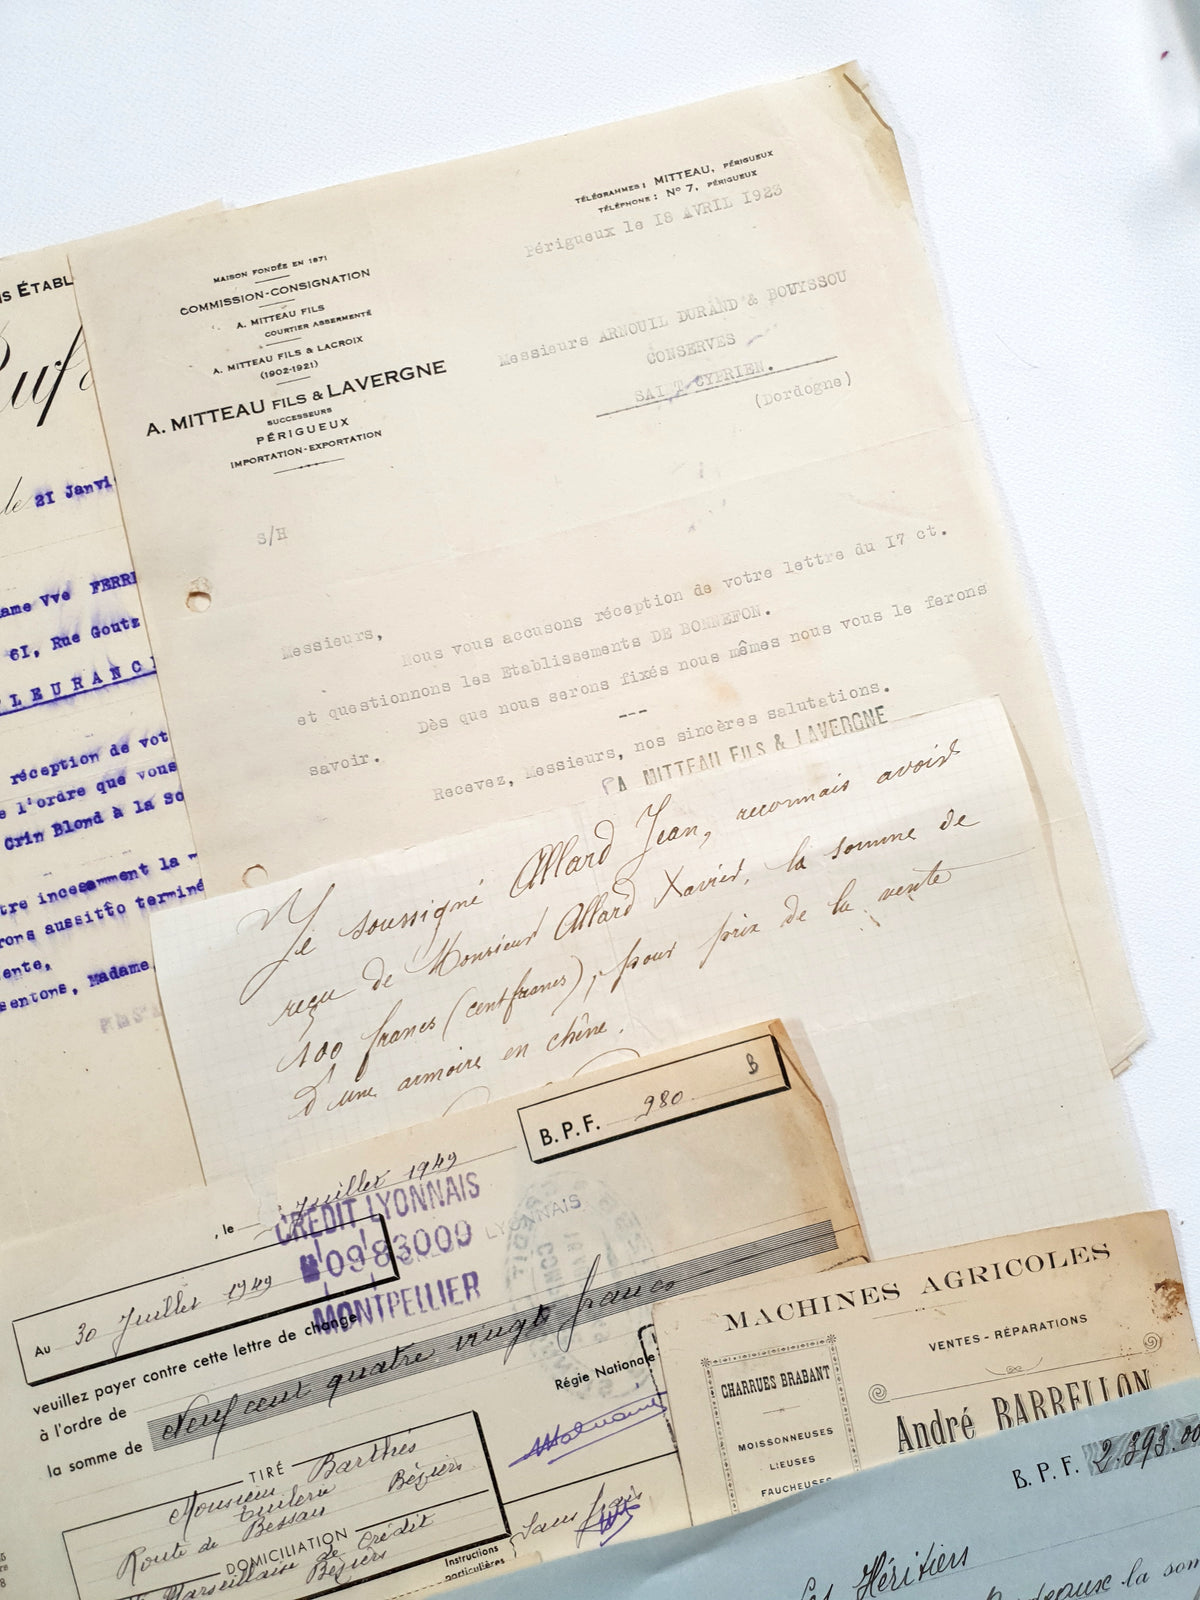 TÉLÉGRAMMES: MITTEAU, PÉRIGUEUX
TÉLÉPHONE: N° 7, PÉRIGUEUX
Périgueux le 18 AVRIL 1923
MAISON FONDÉE EN 1871
COMMISSION-CONSIGNATION
A. MITTEAU FILS
COURTIER ASSERMENTÉ
A. MITTEAU FILS & LACROIX
(1902-1921)
A. MITTEAU FILS & LAVERGNE
SUCCESSEURS
PÉRIGUEUX
IMPORTATION-EXPORTATION
Messieurs ARNOUIL DURAND & BOUYSSOU
CONSERVES
SAI T CYPRIEN.
(Dordogne)
S/H
Messieurs,
Nous vous accusons réception de votre lettre du 17 ct.
et questionnons les Etablissements DE BONNEFON.
Dès que nous serons fixés nous mêmes nous vous le ferons
savoir.
---
Recevez, Messieurs, nos sincères salutations.
A MITTEAU FILS & LAVERGNE
IS ÉTABL
Ruf
le 21 Janvi
ame Vve FERR
61, Rue Goutz
LEURANC
réception de vot
e l'ordre que vous
Crin Blond à la So
tre incesamment la
rons aussitôo terminé
ente,
sentons, Madame,
Je soussigné Allard Jean, reconnais avoir
reçu de Monsieur Allard Xavier, la somme de
100 francs (cent francs), pour prix de la vente
d'une armoire en chêne.
B.P.F. 980 B
, le Juillet 1949
CRÉDIT LYONNAIS
0983000
MONTPELLIER
LYONNAIS
Au 30 Juillet 1949
veuillez payer contre cette lettre de change
à l'ordre de
Régie Nationale
la somme de Neuf cent quatre vingts francs
TIRÉ
Monsieur Barthès
Tuilerie
Route de Bessan Béziers
DOMICILIATION
Marseillaise de Crédit
Béziers
Instructions
particulières
Sans frais
MACHINES AGRICOLES
VENTES - RÉPARATIONS
CHARRUES BRABANT
MOISSONNEUSES
LIEUSES
FAUCHEUSES
André BARRELLON
B.P.F. 2.393.00
Les Héritiers
Bordeaux la som